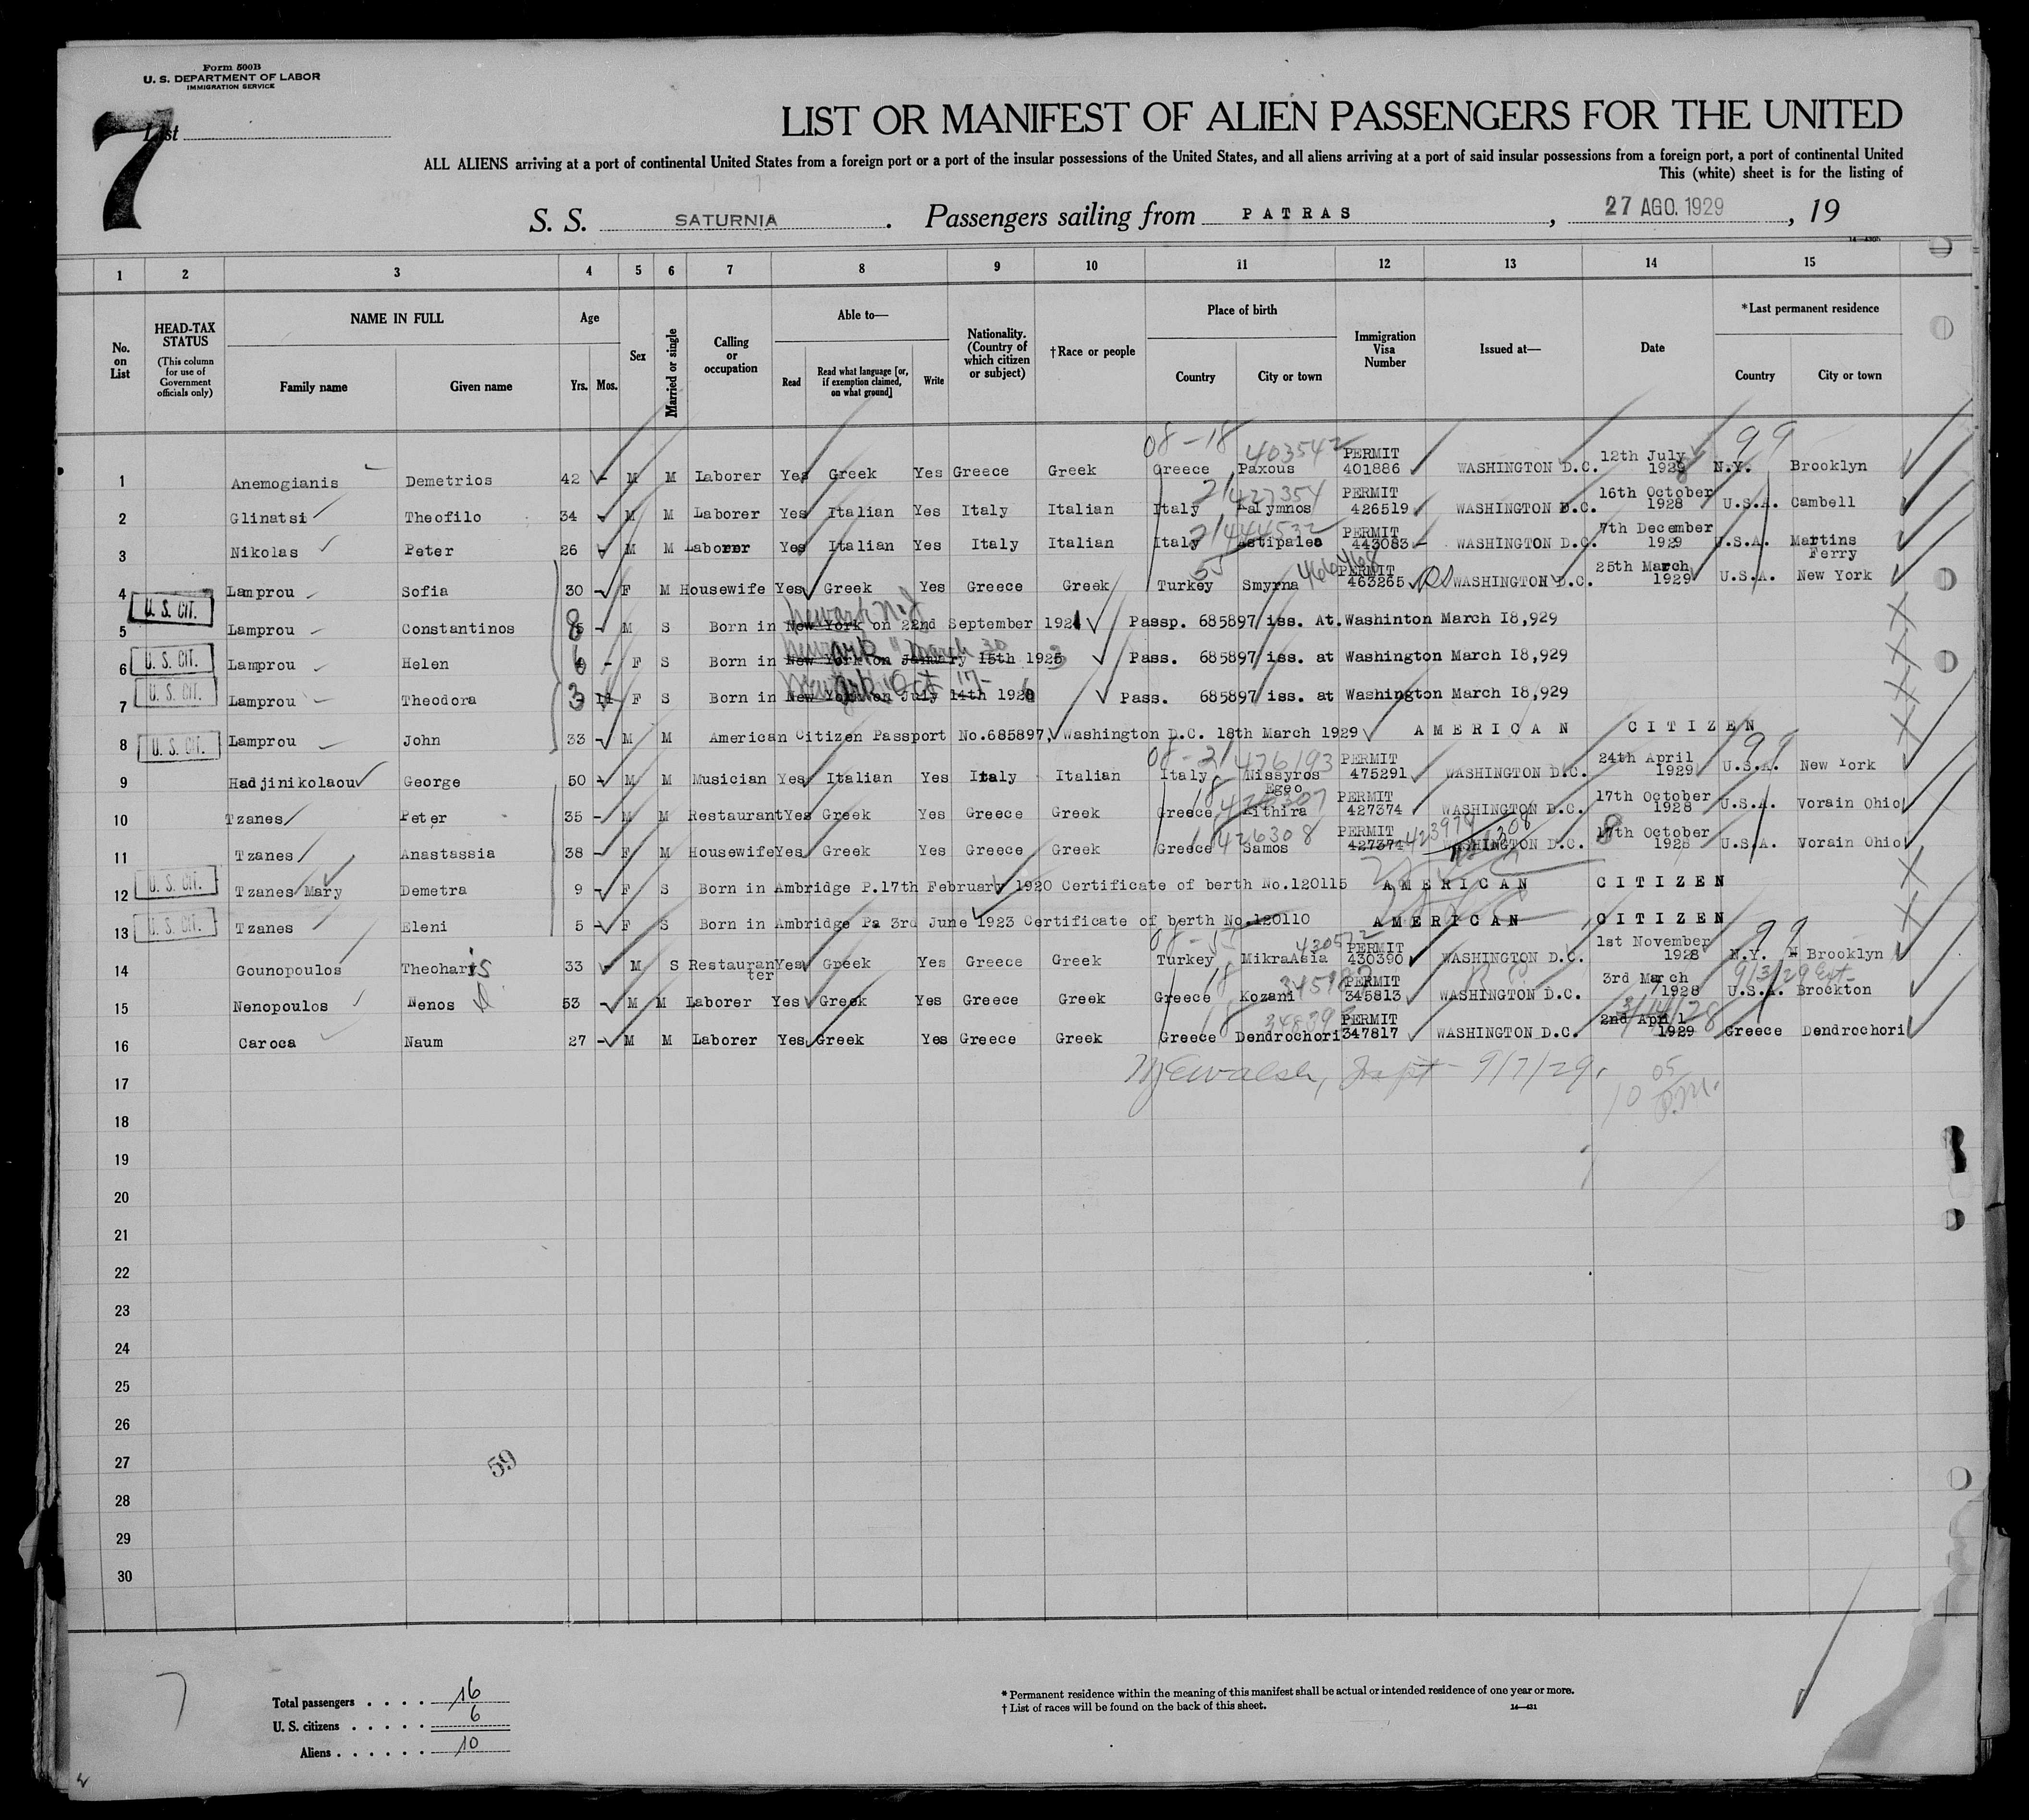 Form 500B
U. S. DEPARTMENT OF LABOR
IMMIGRATION SERVICE
7
List
LIST OR MANIFEST OF ALIEN PASSENGERS FOR THE UNITED
ALL ALIENS arriving at a port of continental United States from a foreign port or a port of the insular possessions of the United States, and all aliens arriving at a port of said insular possessions from a foreign port, a port of continental United
This (white) sheet is for the listing of
S. S. SATURNIA . Passengers sailing from PATRAS , 27 AGO. 1929 , 19
1 2 3 4 5 6 7 8 9 10 11 12 13 14 15
No. on List
HEAD-TAX STATUS (This column for use of Government officials only)
NAME IN FULL
Family name Given name
Age
Yrs. Mos.
Sex
Married or single
Calling or occupation
Able to—
Read Read what language [or, if exemption claimed, on what ground] Write
Nationality. (Country of which citizen or subject)
†Race or people
Place of birth
Country City or town
Immigration Visa Number
Issued at—
Date
*Last permanent residence
Country City or town
08-18 403542 99
1 Anemogianis Demetrios 42 - M M Laborer Yes Greek Yes Greece Greek Greece Paxous PERMIT 401886 WASHINGTON D.C. 12th July 1928 N.Y. Brooklyn
21 427354
2 Glinatsi Theofilo 34 - M M Laborer Yes Italian Yes Italy Italian Italy Kalymnos PERMIT 426519 WASHINGTON D.C. 16th October 1928 U.S.A. Cambell
21 444532
3 Nikolas Peter 26 - M M Laborer Yes Italian Yes Italy Italian Italy Astipaleo PERMIT 443083 WASHINGTON D.C. 7th December 1929 U.S.A. Martins Ferry
55
4 Lamprou Sofia 30 - F M Housewife Yes Greek Yes Greece Greek Turkey Smyrna PERMIT 463265 WASHINGTON D.C. 25th March 1929 U.S.A. New York
U. S. CIT.
Newark N.J
5 Lamprou Constantinos 8 - M S Born in New York on 22nd September 1921 Passp. 685897 iss. At. Washinton March I8,929
Newark " March 30
6 U. S. CIT. Lamprou Helen 6 - F S Born in New York on January 15th 1923 Pass. 685897 iss. at Washington March I8,929
Newark Oct 17
7 U. S. CIT. Lamprou Theodora 3 11 F S Born in New York on July 14th 1920 Pass. 685897 iss. at Washington March I8,929
8 U. S. CIT. Lamprou John 33 - M M American Citizen Passport No.685897, Washington D.C. 18th March 1929 AMERICAN CITIZEN
08-21 476193 99
9 Hadjinikolaou George 50 - M M Musician Yes Italian Yes Italy Italian Italy Nissyros Egeo PERMIT 475291 WASHINGTON D.C. 24th April 1929 U.S.A. New York
18 426307
10 Tzanes Peter 35 - M M Restaurant Yes Greek Yes Greece Greek Greece Kithira PERMIT 427374 WASHINGTON D.C. 17th October 1928 U.S.A. Vorain Ohio
426308
11 Tzanes Anastassia 38 - F M Housewife Yes Greek Yes Greece Greek Greece Samos PERMIT 427374 WASHINGTON D.C. 17th October 1928 U.S.A. Vorain Ohio
12 U. S. CIT. Tzanes Mary Demetra 9 - F S Born in Ambridge P.17th February 1920 Certificate of berth No.120115 AMERICAN CITIZEN
13 U. S. CIT. Tzanes Eleni 5 - F S Born in Ambridge Pa 3rd June 1923 Certificate of berth No.120110 AMERICAN CITIZEN
08-55 430572 99
14 Gounopoulos Theoharis 33 - M S Restauranter Yes Greek Yes Greece Greek Turkey MikraAsia PERMIT 430390 WASHINGTON D.C. 1st November 1928 N.Y. Brooklyn
18 9/3/29 Ext-
15 Nenopoulos Nenos 53 - M M Laborer Yes Greek Yes Greece Greek Greece Kozani PERMIT 345813 WASHINGTON D.C. 3rd March 1928 U.S.A. Brockton
18
16 Caroca Naum 27 - M M Laborer Yes Greek Yes Greece Greek Greece Dendrochori PERMIT 347817 WASHINGTON D.C. 2nd April 1929 Greece Dendrochori
9/7/29.
17
10 05 P.M.
18
19
20
21
22
23
24
25
26
27
59
28
29
30
7
Total passengers . . . . 16
U. S. citizens . . . . . 6
Aliens . . . . . . 10
* Permanent residence within the meaning of this manifest shall be actual or intended residence of one year or more.
† List of races will be found on the back of this sheet.
14—431